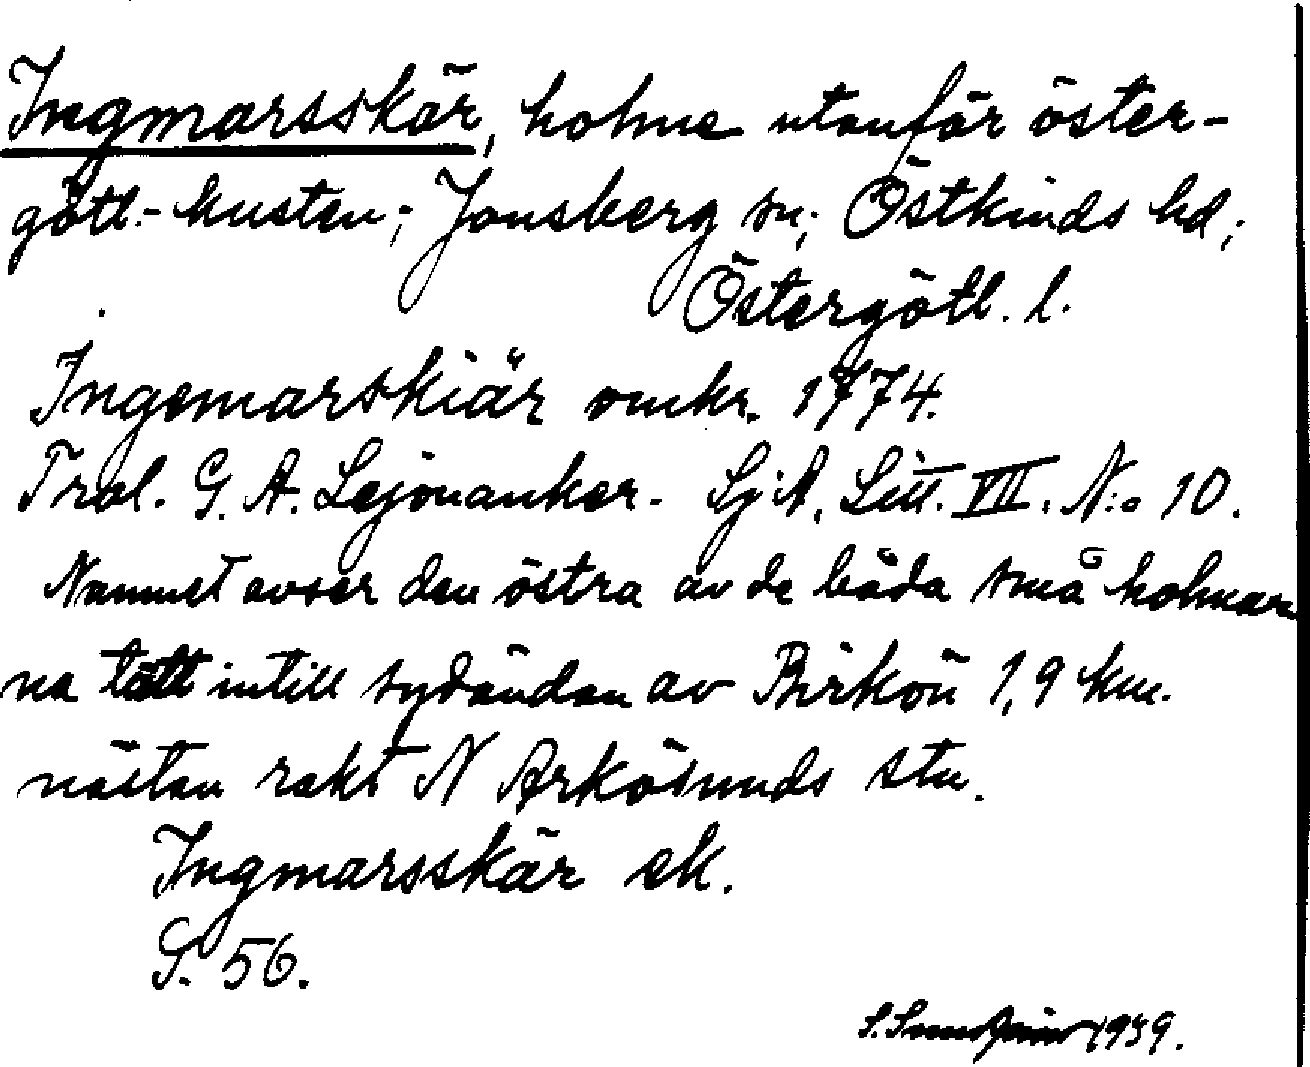 Ingmarsskär, holme utanför öster-
götl.-kusten; Jonsberg sn; Östkinds hd;
Östergötl. l.
Ingemarskiär omkr. 1774.
Trol. G. A. Lejonanker. Sj.A. Litt. VII. N:o 10.
Namnet avser den östra av de båda små holmar-
na tätt intill sydändan av Birkön 1,9 km.
nästan rakt N Arkösunds stn.
Ingmarsskär ek.
S. 56.
S. 1939.